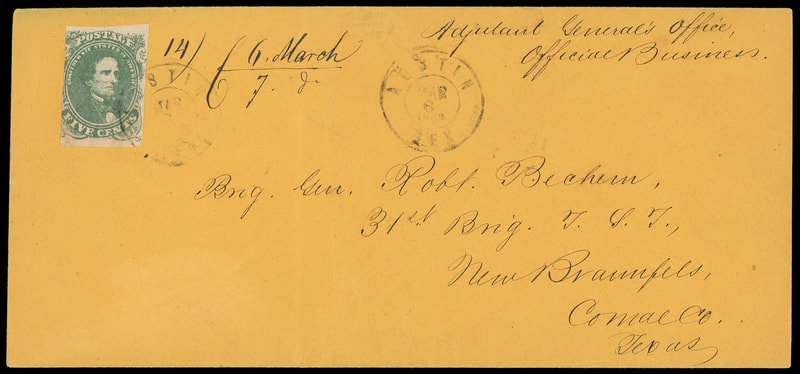 POSTAGE
CONFEDERATE STATES OF AMERICA
FIVE CENTS
14)
6. March
7. d.
AUSTIN
MAR
6
TEX
Adjutant General's Office,
Official Business.
Brig. Gen. Robt. Bechem,
31st Brig. T. S. T.,
New Braunfels,
Comal Co.
Texas